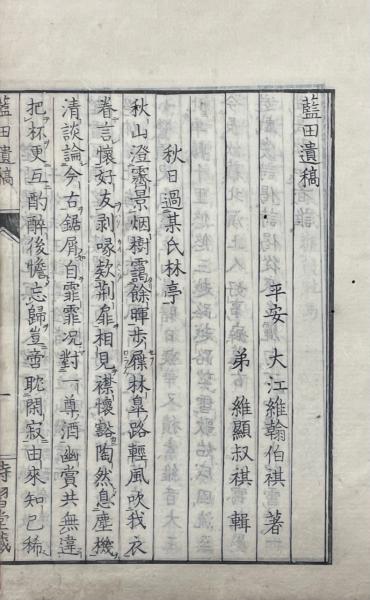 藍田遺稿
平安 大江維翰伯祺 著
弟 維顯叔祺 輯
秋日過某氏林亭
秋山澄霽景烟樹靄餘暉步屧林皐路輕風吹我衣
眷言懷好友剥啄欸荆扉相見襟懷豁陶然息塵機
清談論今古鋸屑自霏霏况對一尊酒幽賞共無違
把杯更互酌醉後憺忘歸豈啻耽閑寂由來知己稀
藍田遺稿
一
時習堂藏